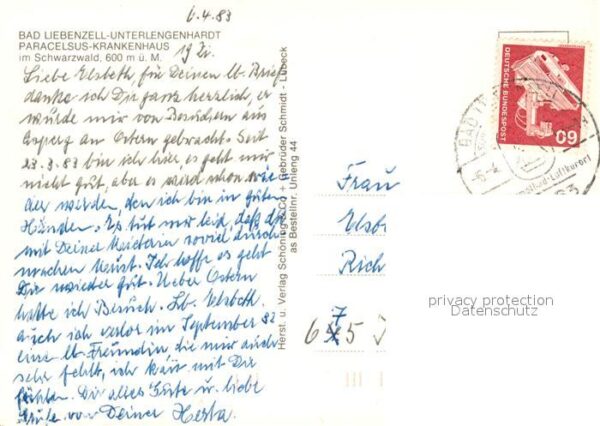 6.4.83
BAD LIEBENZELL-UNTERLENGENHARDT
PARACELSUS-KRANKENHAUS
im Schwarzwald, 600 m ü. M.
19 Zi.
Liebe Elsbeth, für Deinen lb. Brief
danke ich Dir ganz herzlich, er
wurde mir von Besuchern aus
Asperg an Ostern gebracht. Seit
23.3.83 bin ich hier, es geht mir
nicht gut, aber es wird schon wie-
der werden, den ich bin in guten
Händen. Es tut mir leid, daß du
mit Deiner soviel durch-
machen mußt. Ich hoffe es geht
Dir wieder gut. Ueber Ostern
hatte ich Besuch. Lb. Elsbeth
auch ich verlor im September 82
eine lb. Freundin die mir auch
sehr fehlt, ich kann mit Dir
fühlen. Dir alles Gute u. liebe
Grüße von Deiner Herta
Herst. u. Verlag Schöning & Co + Gebrüder Schmidt - Lübeck
as Bestellnr. Unleng 44
DEUTSCHE BUNDESPOST
60
BAD
Luftkurort
Frau
Elsb
Rich
7
6 5
privacy protection
Datenschutz